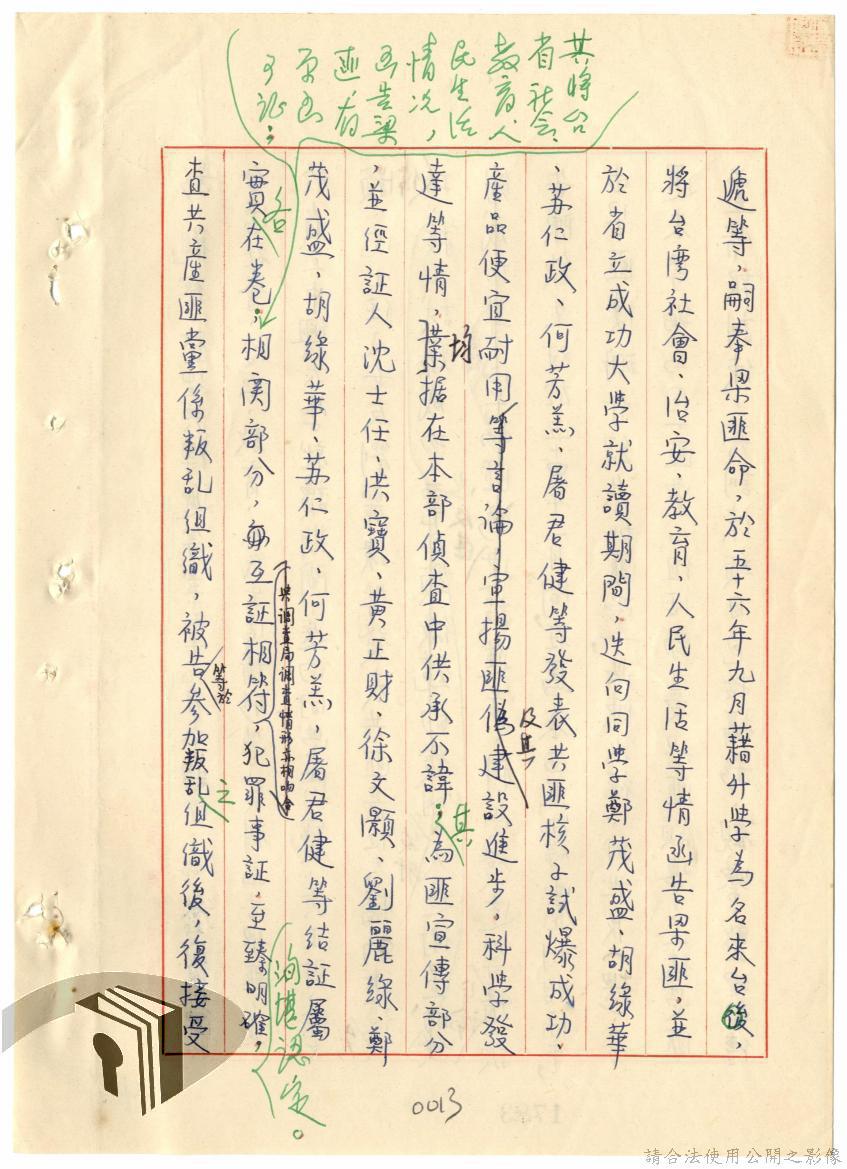 遞等，嗣奉梁匪命，於五十六年九月藉升學為名來台後，
將台灣社會、治安、教育、人民生活等情函告梁匪，並
於省立成功大學就讀期間，迭向同學鄭茂盛、胡綠華
、苏仁政、何芳羔、屠君健等發表共匪核子試爆成功、
產品便宜耐用等言論，宣揚匪偽建設進步，科學發
及其
達等情，業据在本部偵查中供承不諱，為匪宣傳部分
均
其
，並經証人沈士任、洪寶、黄正財、徐文灝、劉麗綠、鄭
茂盛、胡綠華、苏仁政、何芳羔、屠君健等結証屬
實在卷，相関部分，毎互証相符，犯罪事証，至臻明確，
各
與調查局調查情形亦相吻合
洵堪認定。
查共產匪黨係叛乱組織，被告參加叛乱組織後，復接受
等於
之
其將台
省社会、
教育、人
民生活
情况，
函告梁
匪，有
原函
可証；
0013
請合法使用公開之影像